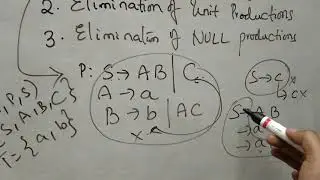 2. Elimination of Unit Productions
3. Elimination of NULL productions
P: S → AB | C
A → a
B → b | AC
x
S → C
↳ Cx
P, S)
S, A, B, C}
T = {a, b}
S → AB
→ a
→ a